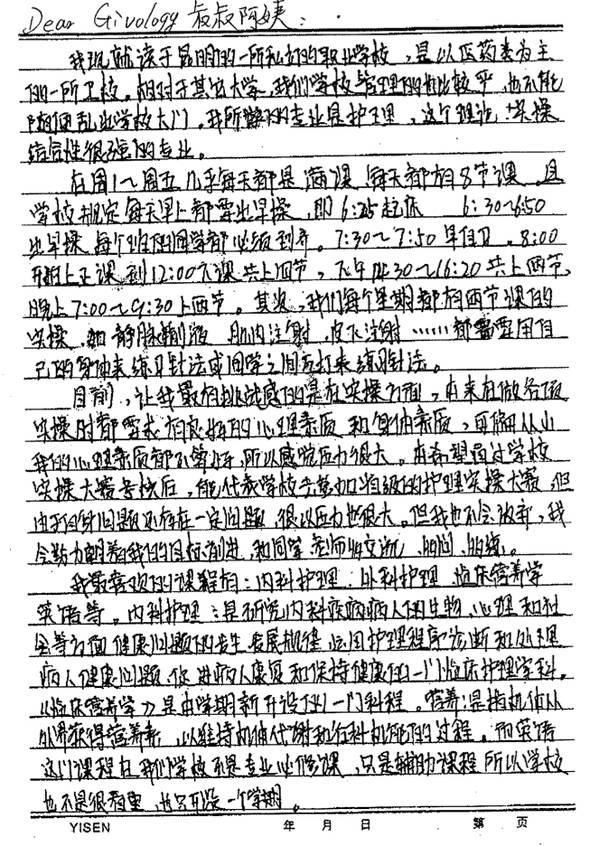 Dear Givology 叔叔阿姨：
我现就读于昆明的一所私立的职业学校，是以医药类为主
的一所卫校。相对于其它大学，我们学校管理的也比较严，也不能
随便乱出学校大门。我所学的专业是护理，这个理论、实操
结合性很强的专业。
在周1～周五几乎每天都是满课，每天都有8节课，且
学校规定每天早上都要出早操，即6:25起床 6:30～6:50
出早操，每个班的同学都必须到齐。7:30～7:50早自习。8:00
开始上正课到12:00下课共上四节，下午14:30～16:20共上两节，
晚上7:00～9:30上两节。其次，我们每个星期都有两节课的
实操，如静脉输液 肌肉注射，皮下注射……都需要用自
己的身体来练习针法或同学之间互打来练习针法。
目前，让我最有挑战感的是在实操方面，本来在做各项
实操时都要求有良好的心理素质和身体素质，可偏从小
我的心理素质都不算好，所以感觉压力很大。本希望通过学校
实操大赛考核后，能代表学校去参加省级的护理实操大赛，但
由于自身问题还存在一定问题，很以压力也很大。但我也不会放弃，我
会努力朝着我的目标前进，和同学 老师
我最喜欢的课程有：内科护理、外科护理 临床营养学
英语等。内科护理：是研究内科疾病病人的生物、心理和社
会等方面健康问题的发生发展规律，运用护理程序诊断和处理
病人健康问题，促进病人康复和保持健康的一门临床护理学科。
《临床营养学》是本学期新开设的一门科程。营养：是指机体从
外界获得营养素，以维持机体代谢和各科机能的过程。而英语
这门课程在我们学校不是专业必修课，只是辅助课程 所以学校
也不是很看重，也只开设一个学期。
YISEN 年 月 日 第 页